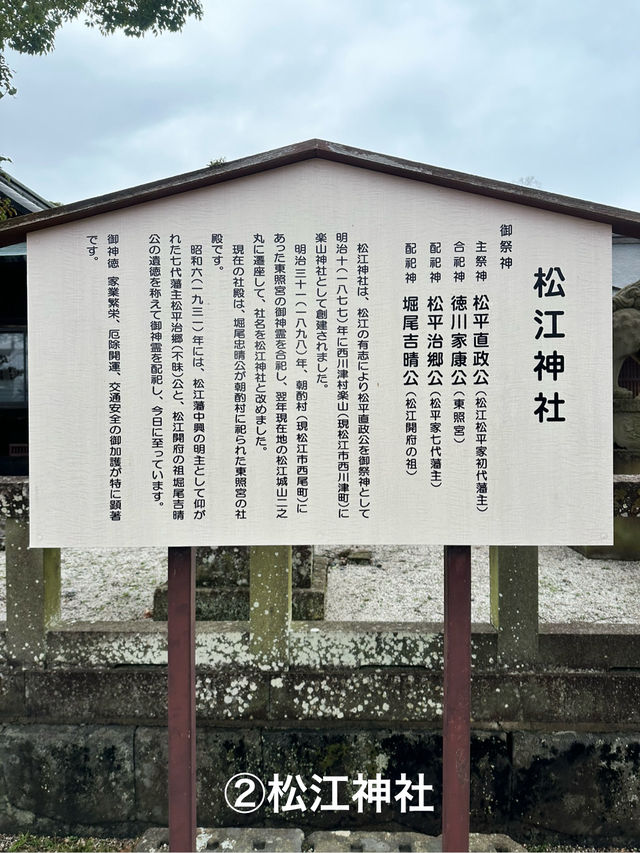 松江神社
御祭神
主祭神 松平直政公(松江松平家初代藩主)
合祀神 徳川家康公(東照宮)
配祀神 松平治郷公(松平家七代藩主)
配祀神 堀尾吉晴公(松江開府の祖)
松江神社は、松江の有志により松平直政公を御祭神として
明治十(一八七七)年に西川津村楽山(現松江市西川津町)に
楽山神社として創建されました。
明治三十一(一八九八)年、朝酌村(現松江市西尾町)に
あった東照宮の御神霊を合祀し、翌年現在地の松江城山二之
丸に遷座して、社名を松江神社と改めました。
現在の社殿は、堀尾忠晴公が朝酌村に祀られた東照宮の社
殿です。
昭和六(一九三一)年には、松江藩中興の明主として仰が
れた七代藩主松平治郷(不昧)公と、松江開府の祖堀尾吉晴
公の遺徳を称えて御神霊を配祀し、今日に至っています。
御神徳 家業繁栄、厄除開運、交通安全の御加護が特に顕著
です。
②松江神社